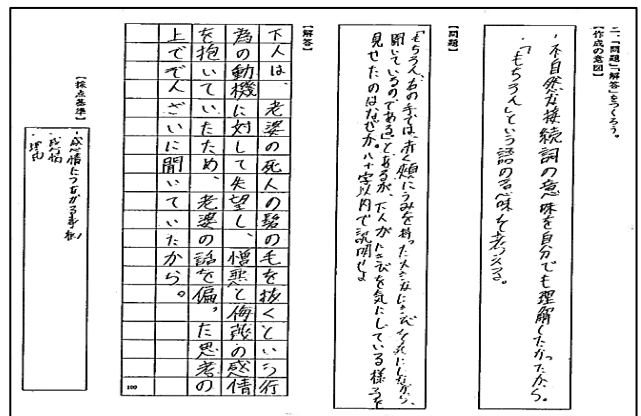 二、「問題」「解答」をつくろう。
【作成の意図】
・不自然な接続詞の意味を自分でも理解したかったから。
・「もちろん」という語の意味を考える。
【問題】
「もちろん、右の手では、赤く頬にうみを持った大きなにきびを気にしながら、
聞いているのである」とあるが、下人がにきびを気にしている様子を
見せたのはなぜか。八十字以内で説明せよ
【解答】
下人は、老婆の死人の髪の毛を抜くという行
為の動機に対して失望し、憎悪と侮蔑の感情
を抱いていたため、老婆の話を偏った思考の
上でぞんざいに聞いていたから。
100
【採点基準】
・感情につながる事柄
・感情
・理由